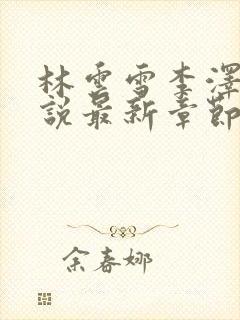 林雲雪李澤
說最新章節
余春娜